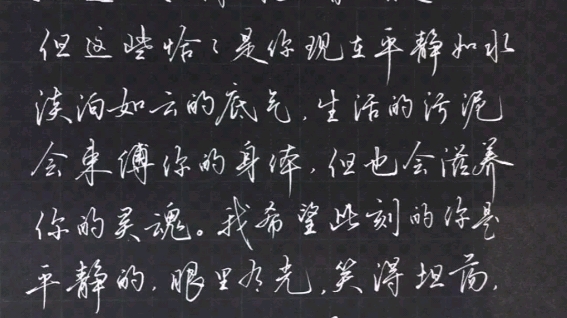 但这些恰恰是你现在平静如水
淡泊如云的底气,生活的污泥
会束缚你的身体,但也会滋养
你的灵魂。我希望此刻的你是
平静的,眼里有光,笑得坦荡,